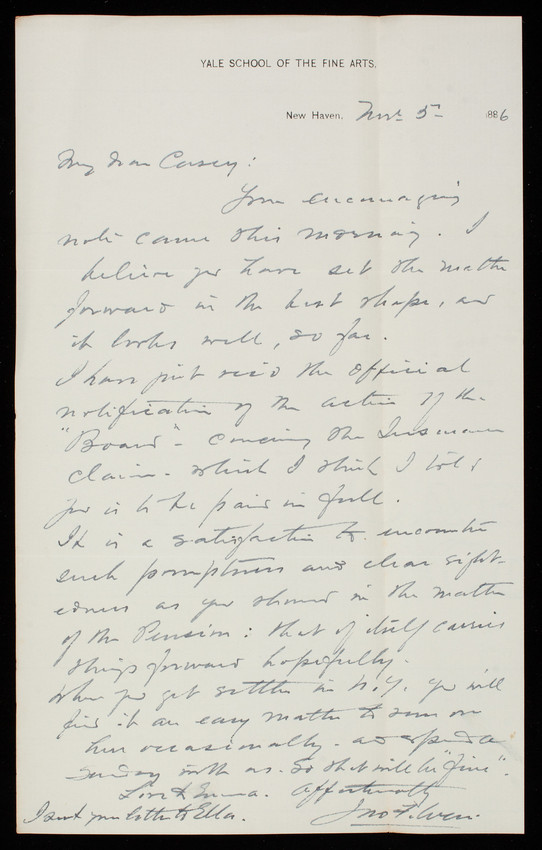 YALE SCHOOL OF THE FINE ARTS.
New Haven, Nov. 5 1886
My dear Casey:
Your encouraging
note came this morning. I
believe you have set the matter
forward in the best shape, and
it looks well, so far.
I have just rec'd the official
notification of the action of the
"Board" - concerning the Insurance
claim - which I think I told
you is to be paid in full.
It is a satisfaction to encounter
such promptness and clear sight-
edness as you showed in the matter
of the Pension: that of itself carries
things forward hopefully.
When you get settled in N.Y. you will
find it an easy matter to run on
here occasionally - and spend a
Sunday with us. So that will be "fine".
Love to Emma. Affectionately
I sent your letter to Ella. Jno. F. Weir.